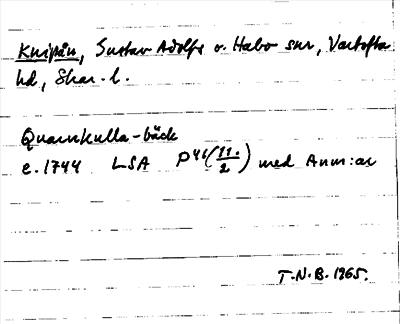 Knipån, Gustav Adolfs o. Habo snr, Vartofta
hd, Skar. l.
Quarnkulla-bäck
c. 1744 LSA P46(11:2) med Anm:ar
T.N.B. 1965.